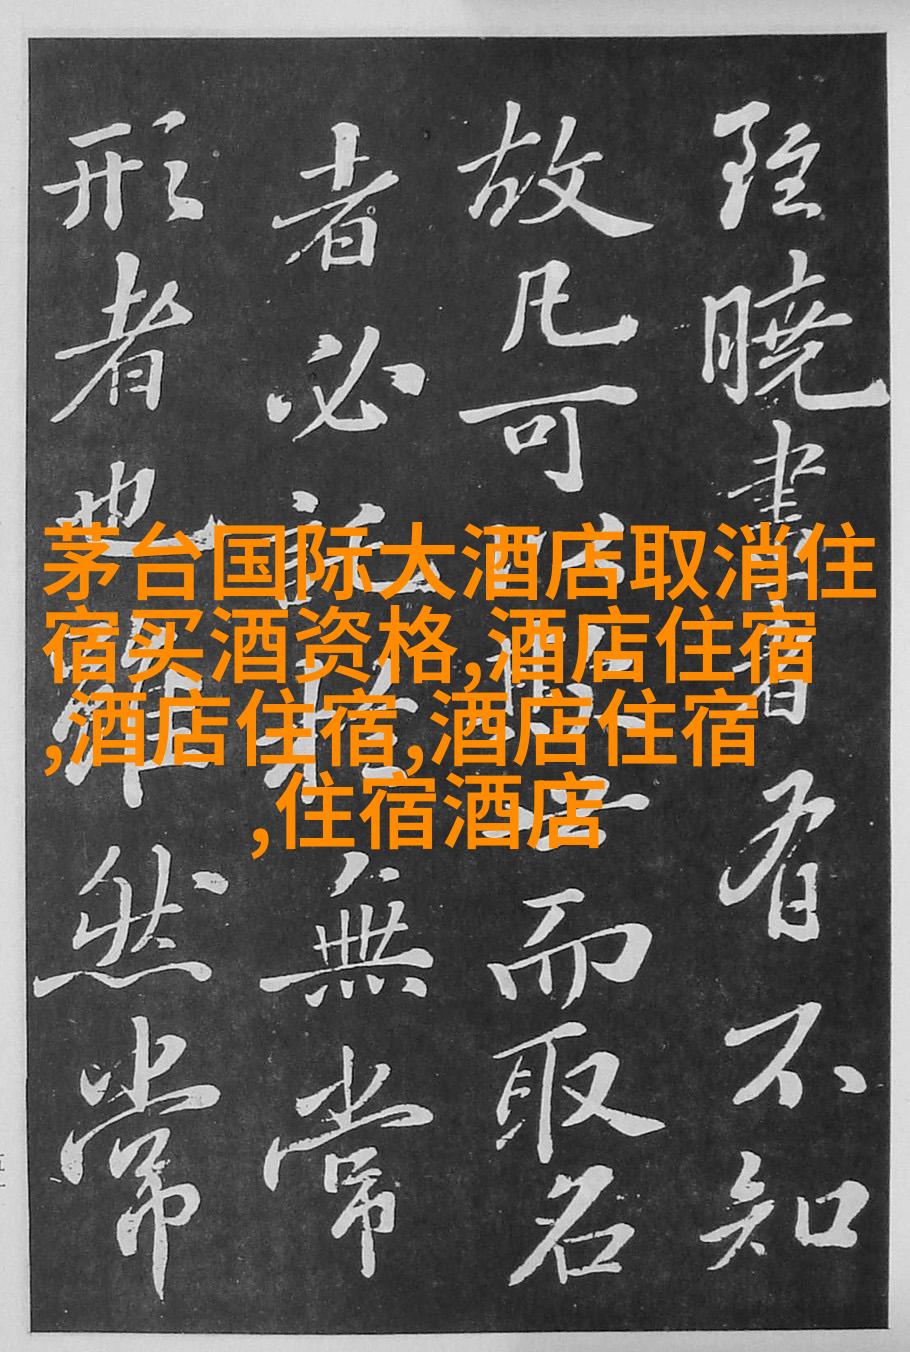 雖曉畫者有不知
故凡可以欺世而取名
者必託於無常
形者也雖然常
茅台国际大酒店取消住
宿买酒资格,酒店住宿
,酒店住宿,酒店住宿
,住宿酒店